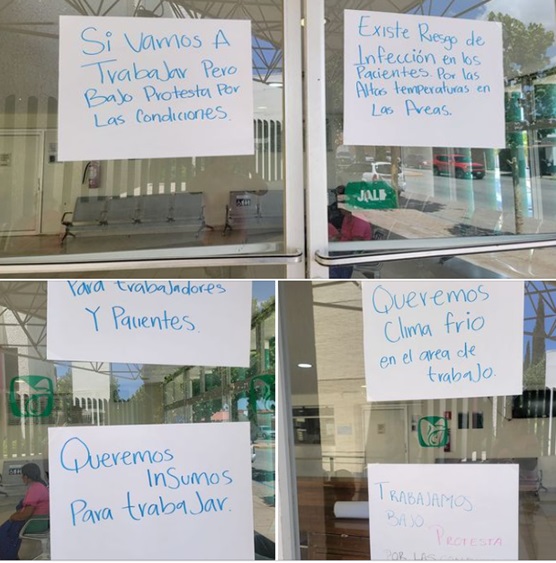 Si Vamos A
Trabajar Pero
Bajo Protesta Por
Las Condiciones.
Existe Riesgo de
Infección en los
Pacientes. Por las
Altas temperaturas en
Las Areas.
JALE
Para trabajadores
Y Pacientes.
Queremos
InSumos
Para trabajar.
Queremos
Clima frio
en el area de
trabajo.
TRABAJAMOS
BAJO
PROTESTA
POR LAS